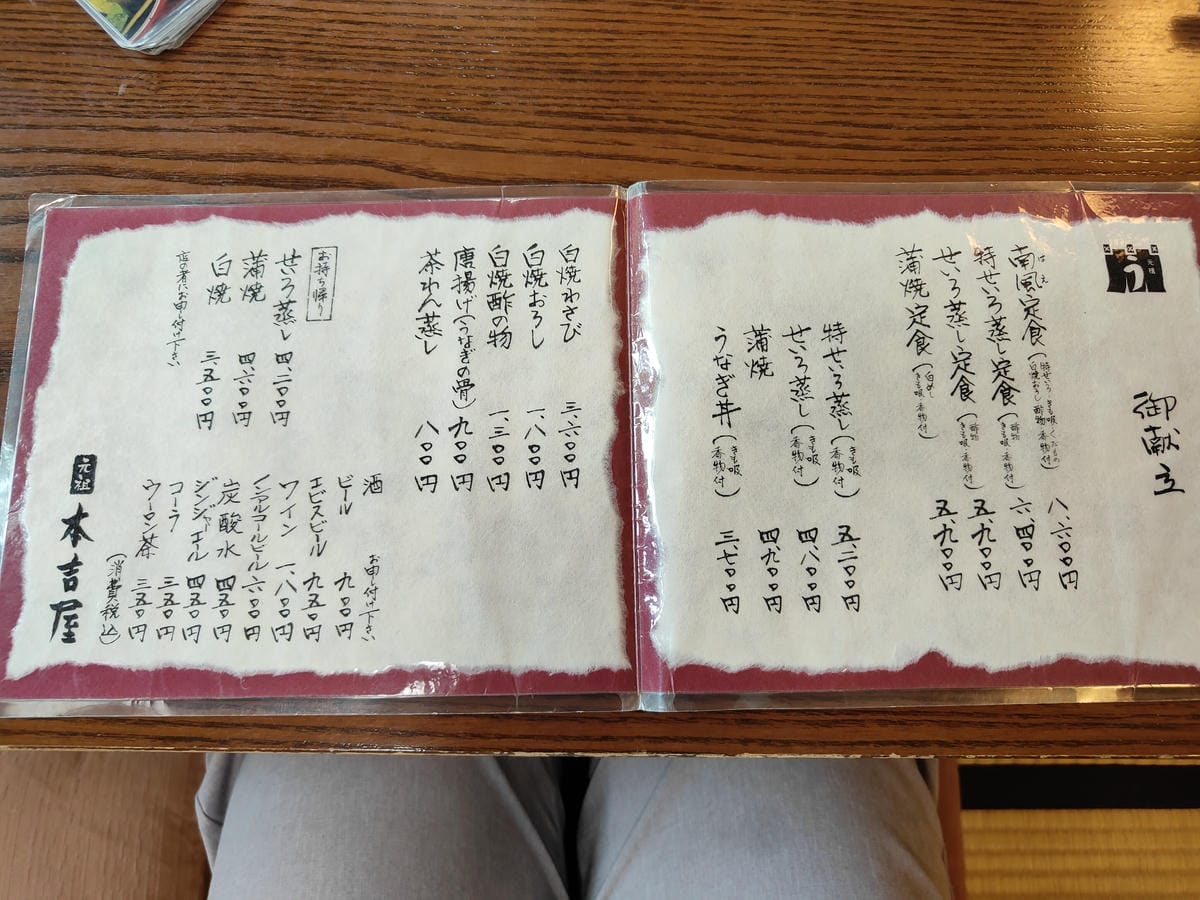 元祖
う
御献立
南風定食(特せいろ・きも吸・くだもの 白焼おろし・酢物・香物付) 八、六〇〇円
はえ
特せいろ蒸し定食(酢物 きも吸・香物付) 六、四〇〇円
せいろ蒸し定食(酢物 きも吸・香物付) 五、九〇〇円
蒲焼定食(白めし きも吸・香物付) 五、九〇〇円
特せいろ蒸し(きも吸 香物付) 五、二〇〇円
せいろ蒸し(きも吸 香物付) 四、八〇〇円
蒲焼 四、九〇〇円
うなぎ丼(きも吸 香物付) 三、七〇〇円
白焼わさび 三、六〇〇円
白焼おろし 一、八〇〇円
白焼酢の物 一、三〇〇円
唐揚げ(うなぎの骨) 九〇〇円
茶わん蒸し 八〇〇円
お持ち帰り
せいろ蒸し 四、二〇〇円
蒲焼 四、六〇〇円
白焼 三、五〇〇円
店の者にお申し付け下さい
酒 お申し付け下さい
ビール 九〇〇円
エビスビール 九五〇円
ワイン 一、八〇〇円
ノンアルコールビール 六〇〇円
炭酸水 四五〇円
ジンジャーエール 四五〇円
コーラ 三五〇円
ウーロン茶 三五〇円
(消費税込)
元祖 本吉屋